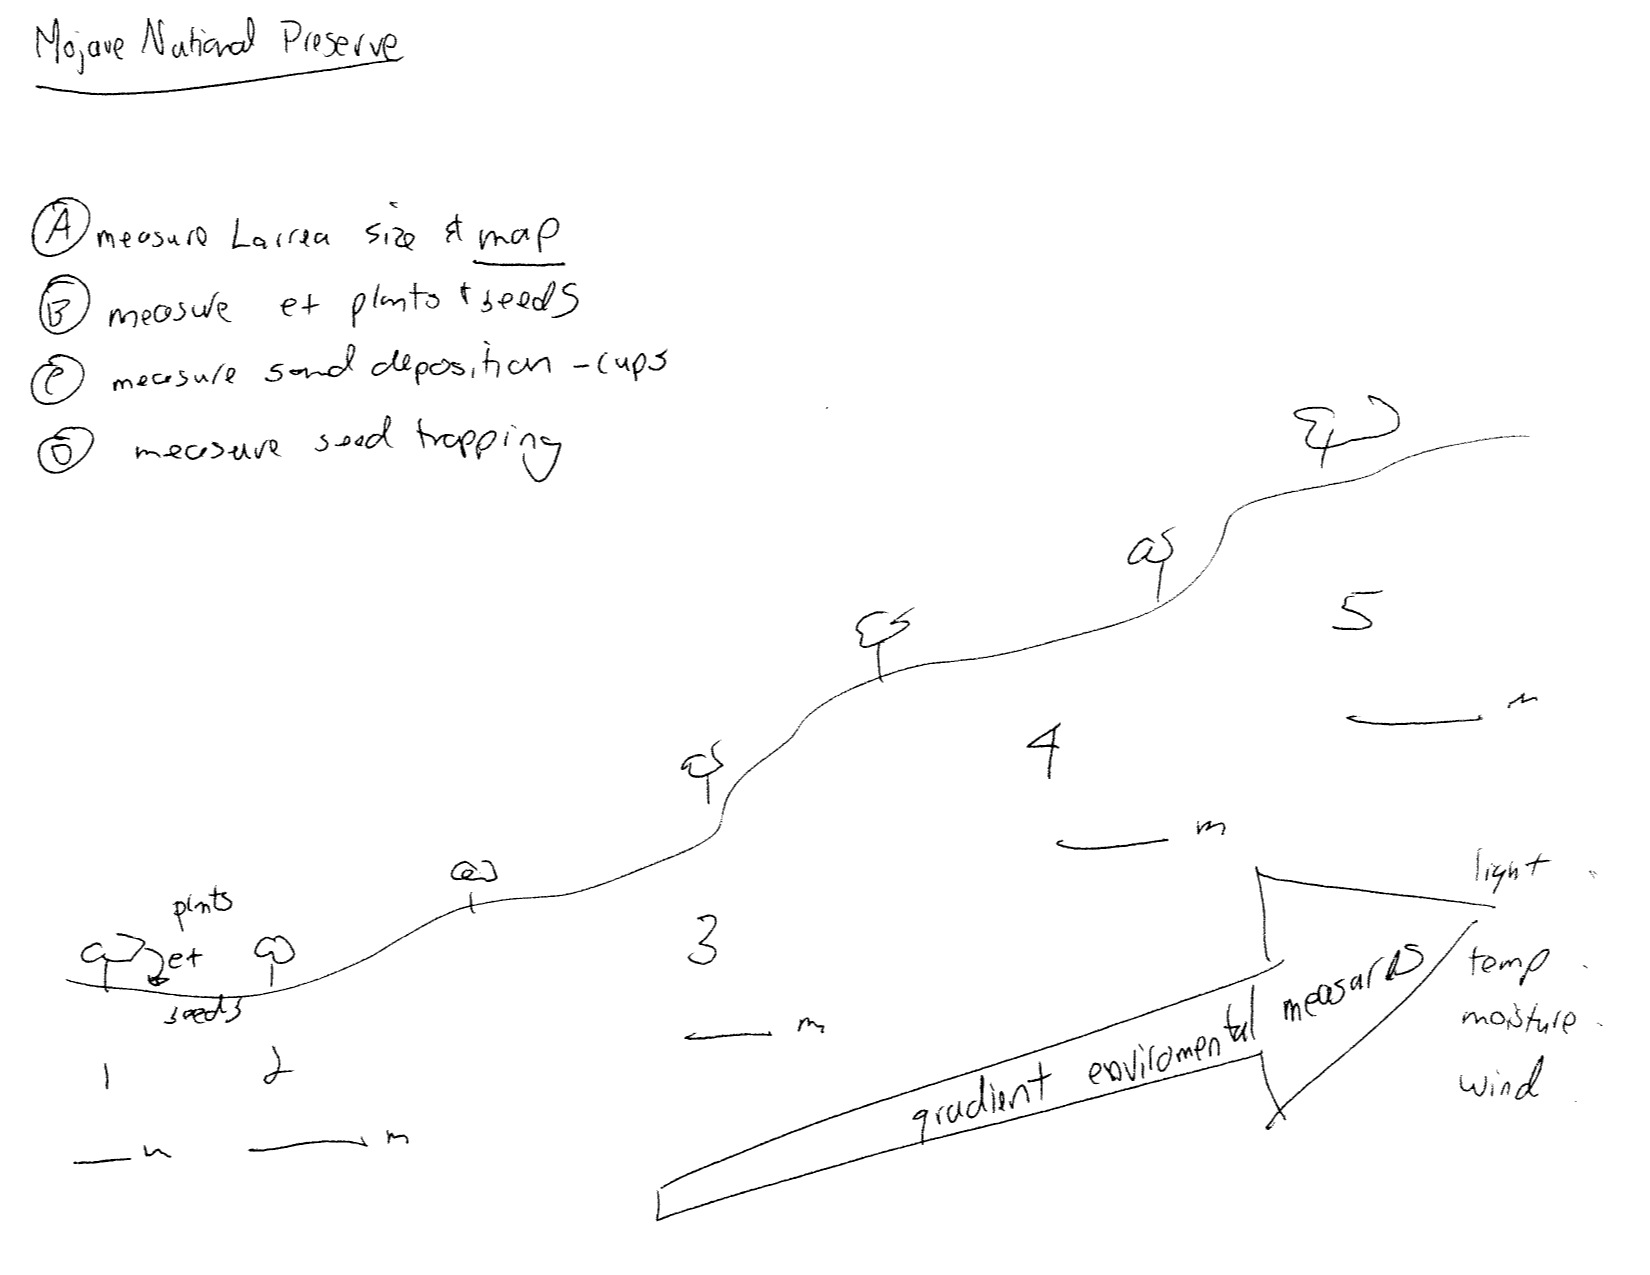 Mojave National Preserve
A measure Larrea size & map
B measure et plants + seeds
C measure sand deposition - cups
D measure seed trapping
plants
et
seeds
1
2
3
4
5
m
m
m
m
m
gradient enviromental measures
light
temp
moisture
wind